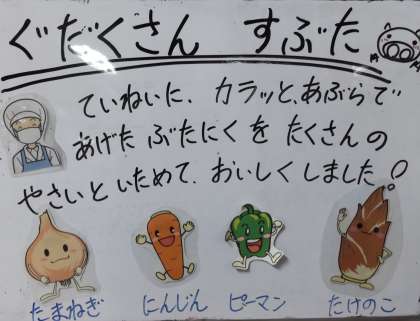 ぐだくさん すぶた
ていねいに、カラッと、あぶらで
あげた ぶたにくを たくさんの
やさいと いためて、おいしくしました!
たまねぎ にんじん ピーマン たけのこ